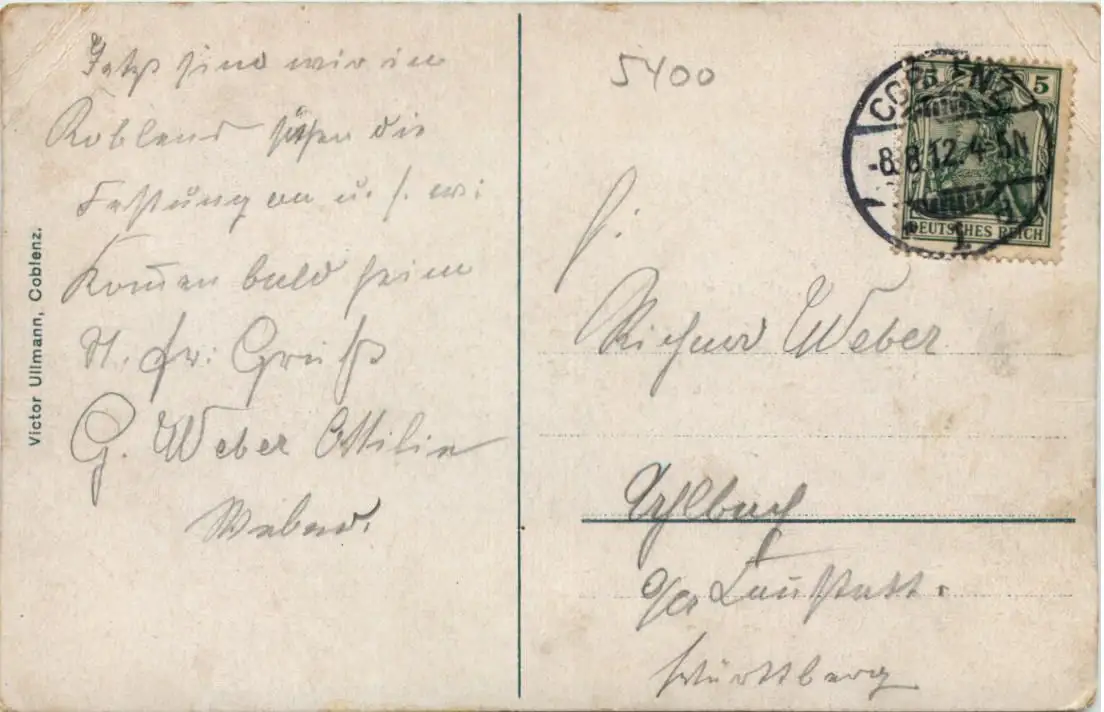 Jetzt sind wir in
Koblenz sehen die
Festung an u. s. w.
Kom̄en bald heim
H. fr. Grüße
G. Weber Ottilie
Weber.
Victor Ullmann, Coblenz.
5400
COBLENZ
-8.8.12.4-5N
1.
5 5
DEUTSCHES REICH
H.
Richard Weber
Uhlbach
O/A Cannstatt.
Württberg